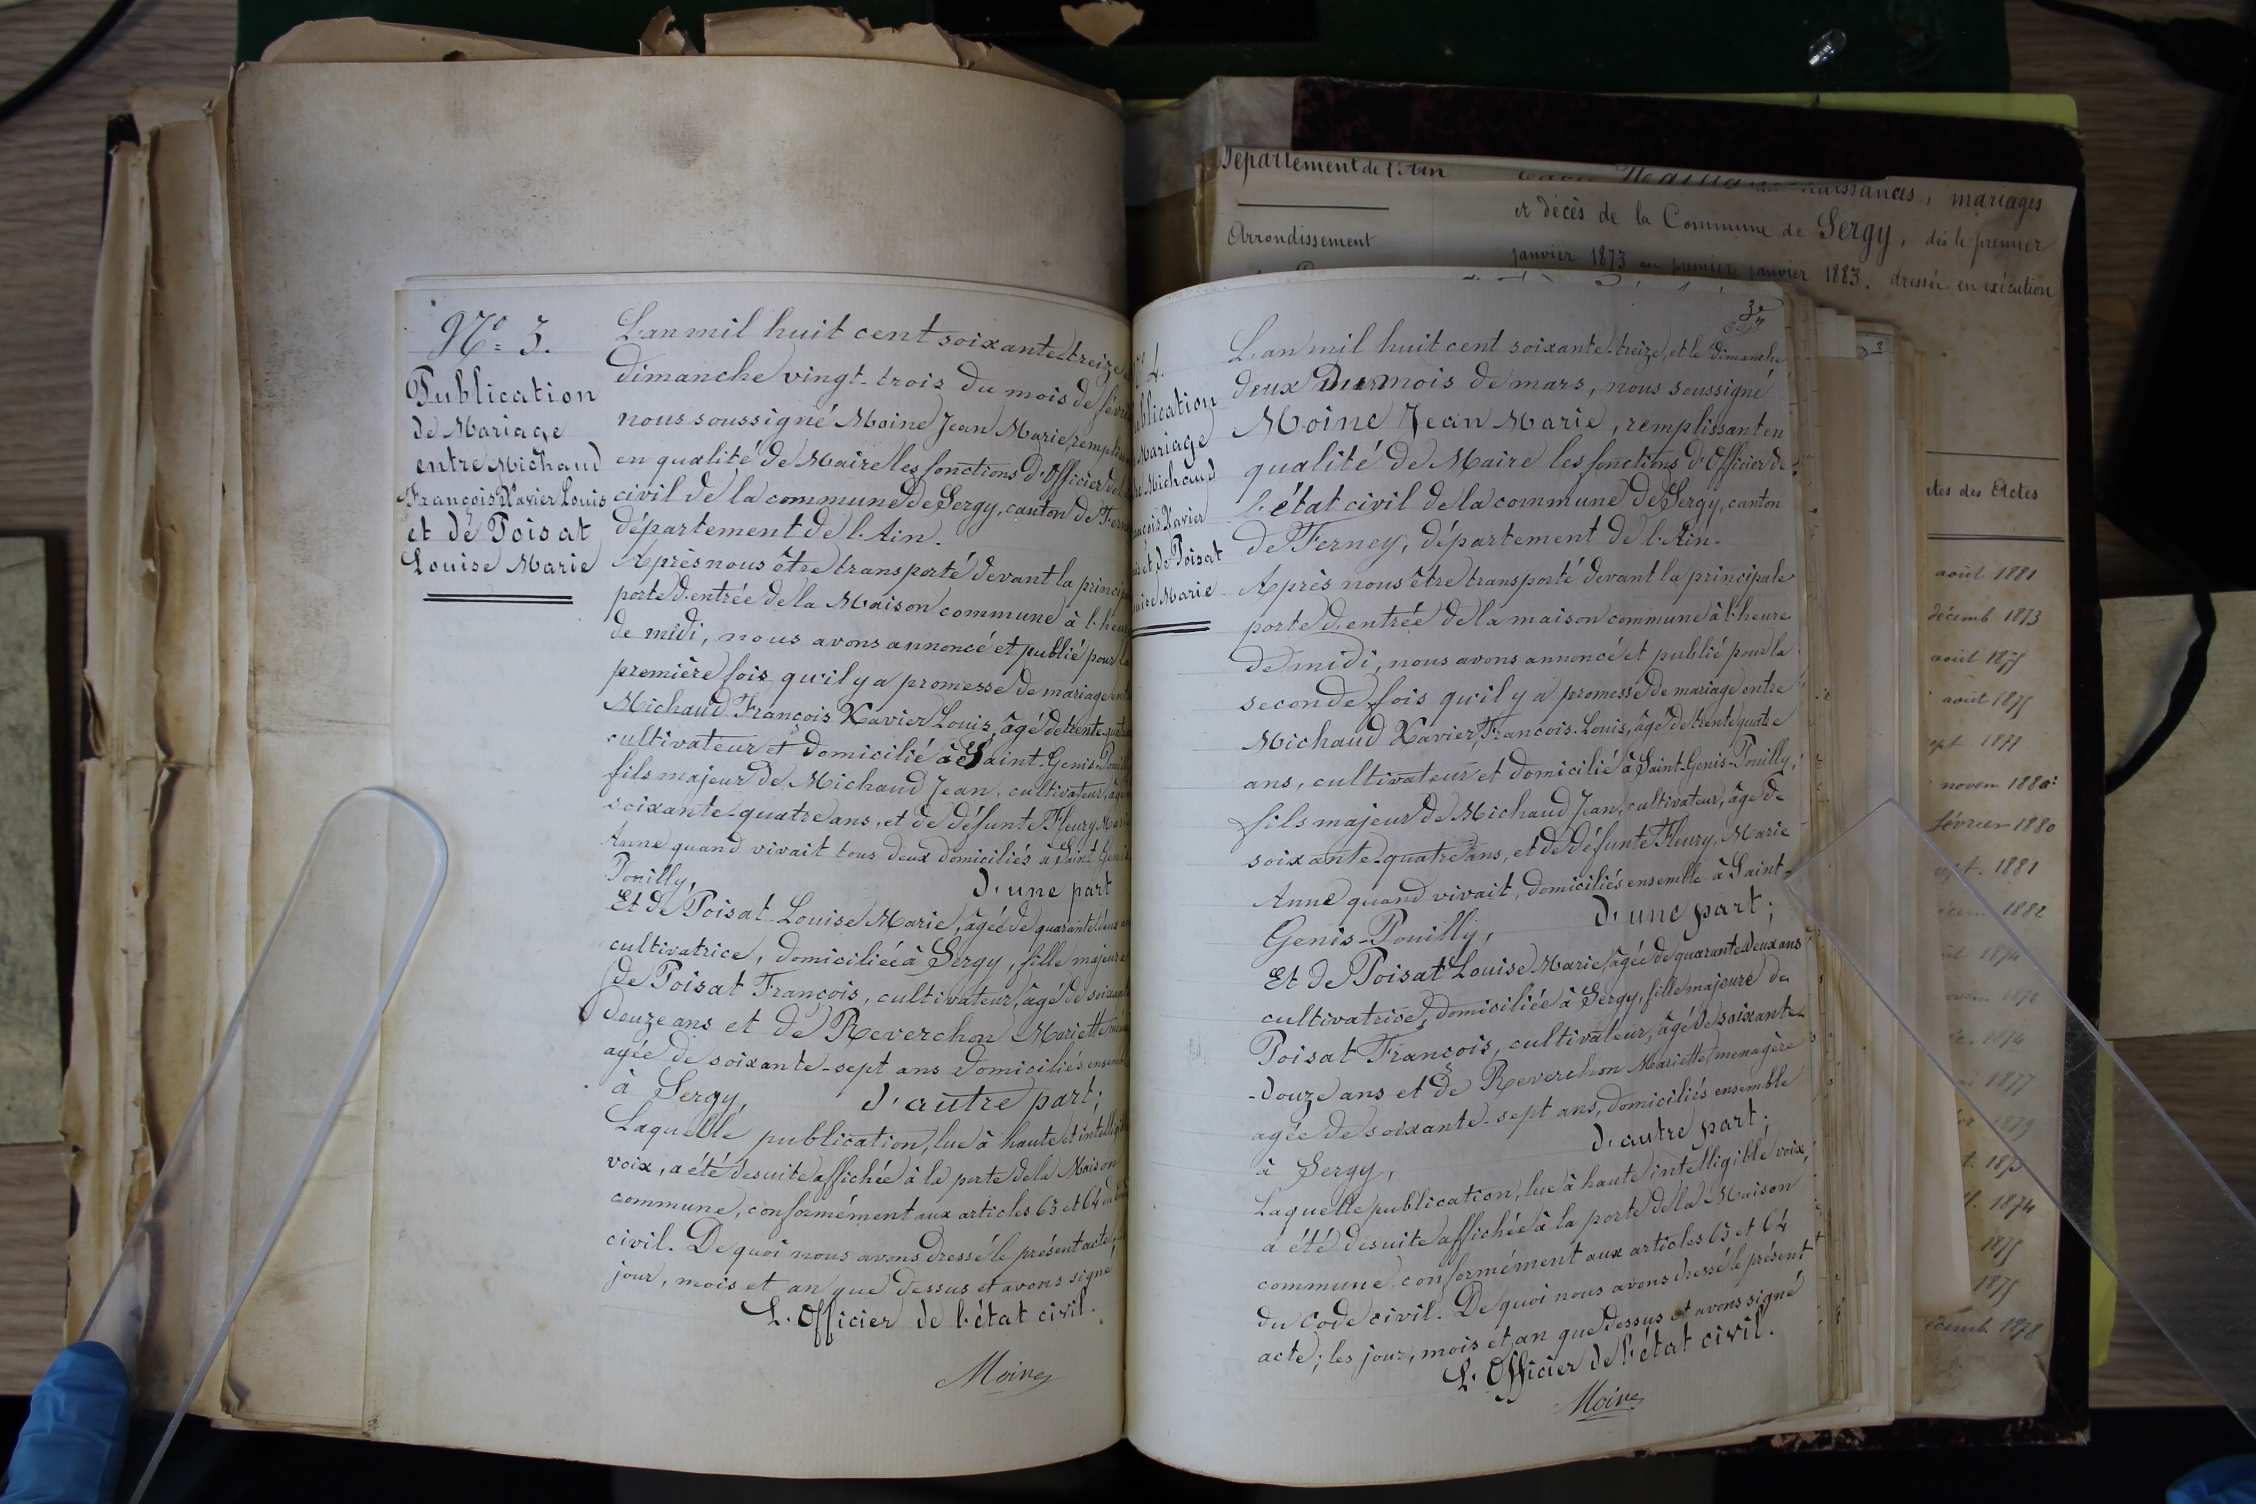 Nº 3.
Publication
de Mariage
entre Michaud
François Xavier Louis
et de Poisat
Louise Marie
L'an mil huit cent soixante-treize
dimanche vingt-trois du mois de
nous soussigné Moine Jean Marie,
en qualité de Maire les fonctions d'Officier de
civil de la commune de Sergy, canton de
département de l'Ain.
Après nous être transporté devant la
porte d'entrée de la Maison commune à
de midi, nous avons annoncé et publié pour
première fois qu'il y a promesse de mariage
Michaud François Xavier Louis, âgé de trente
cultivateur et domicilié à Saint-Genis-
fils majeur de Michaud Jean, cultivateur,
soixante-quatre ans, et de défunte Fleury
Anne quand vivait tous deux domiciliés à Saint
Pouilly, d'une part
Et de Poisat Louise Marie, âgée de quarante deux
cultivatrice, domiciliée à Sergy, fille majeure
de Poisat François, cultivateur, âgé de
douze ans et de Reverchon Mariette
agée de soixante-sept ans domiciliés
à Sergy, d'autre part;
Laquelle publication, lue à haute et
voix, a été de suite affichée à la porte de la Maison
commune, conformément aux articles 63 et 64
civil. De quoi nous avons dressé le présent acte
jour, mois et an que dessus et avons signé
L'Officier de l'état civil.
Moine
Mariage
Michaud
Xavier
et de Poisat
Marie
L'an mil huit cent soixante-treize, et le dimanche
deux du mois de mars, nous soussigné
Moine Jean Marie, remplissant en
qualité de Maire les fonctions d'Officier de
l'état civil de la commune de Sergy, canton
de Ferney, département de l'Ain.
Après nous être transporté devant la principale
porte d'entrée de la maison commune à l'heure
de midi, nous avons annoncé et publié pour la
seconde fois qu'il y a promesse de mariage entre
Michaud Xavier, François-Louis, âgé de trente quatre
ans, cultivateur et domicilié à Saint-Genis-Pouilly,
fils majeur de Michaud Jean, cultivateur, âgé de
soixante-quatre ans, et de défunte Fleury, Marie
Anne quand vivait, domiciliés ensemble à Saint-
Genis-Pouilly, d'une part;
Et de Poisat Louise Marie, âgée de quarante deux ans
cultivatrice, domiciliée à Sergy, fille majeure de
Poisat François, cultivateur, âgé de soixante-
-douze ans et de Reverchon Mariette, menagère
agée de soixante-sept ans, domiciliés ensemble
à Sergy, d'autre part;
Laquelle publication, lue à haute intelligible voix,
a été de suite affichée à la porte de la Maison
commune conformément aux articles 63 et 64
du Code civil. De quoi nous avons dressé le présent
acte; les jour, mois et an que dessus et avons signé
L'Officier de l'état civil.
Moine
Département de l'Ain
Arrondissement
naissances, mariages
et décès de la Commune de Sergy, dès le premier
janvier 1873 au premier janvier 1883. dressée en exécution
des Actes
août 1881
décemb 1873
août 1875
août 1875
1877
novem 1880
février 1880
1881
1882
1874
1874
1877
1879
1874
1875
1875
1878